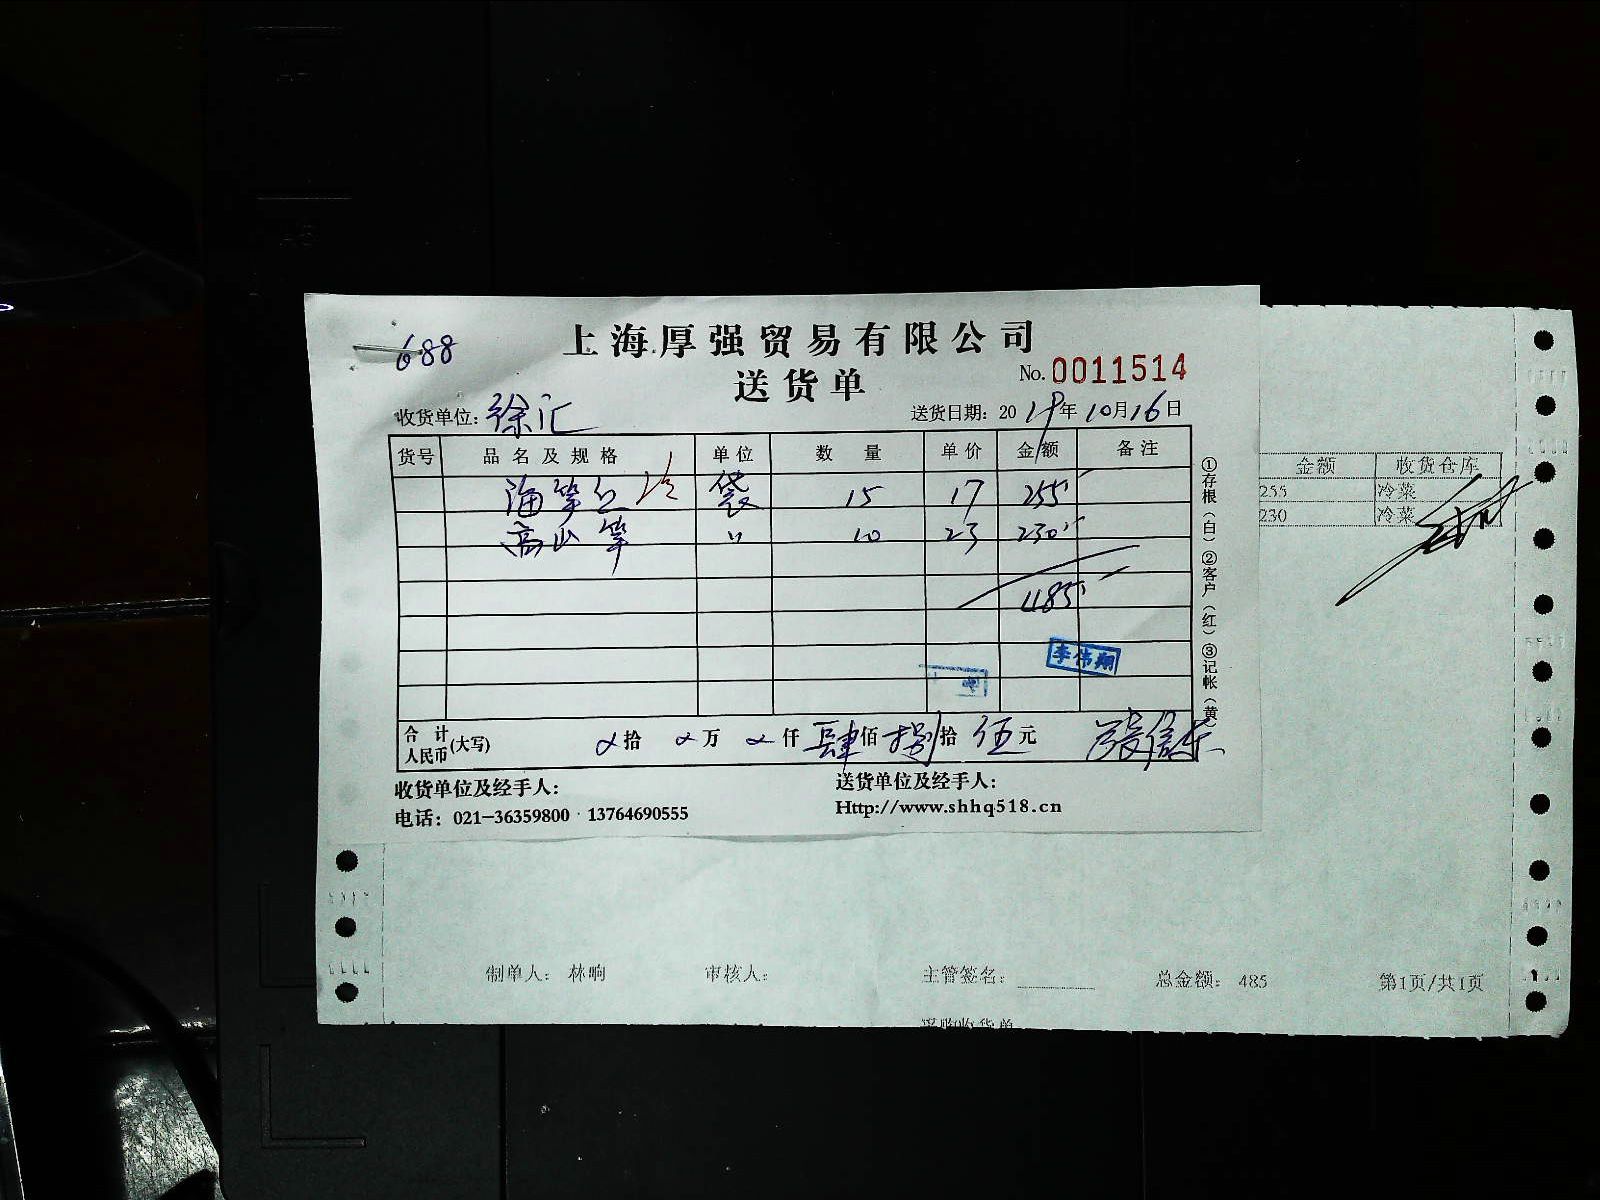 688
上海厚强贸易有限公司
送货单
No. 0011514
收货单位: 徐汇
送货日期: 2019年10月16日
货号 品名及规格 单位 数量 单价 金额 备注
海笋 袋 15 17 255
高山笋 〃 10 23 230
485
李伟翔
合计人民币(大写) 拾 万 仟 肆佰 捌拾 伍元
①存根(白)②客户(红)③记帐(黄)
收货单位及经手人:
送货单位及经手人:
电话: 021-36359800 13764690555
Http://www.shhq518.cn
金额 收货仓库
255 冷菜
230 冷菜
制单人: 林响 审核人: 主管签名: 总金额: 485 第1页/共1页